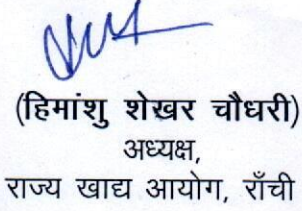 (हिमांशु शेखर चौधरी)
अध्यक्ष,
राज्य खाद्य आयोग, राँची